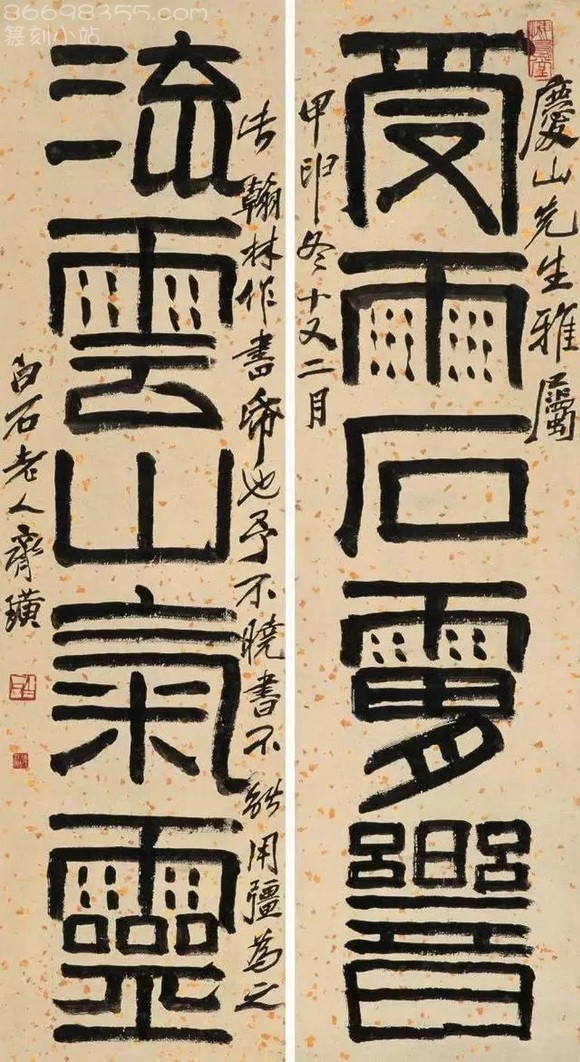 慶山先生雅屬
受雨石
甲申冬十又二月
此翰林作書帋也予不曉書不能用彊為之
流雲山氣靈
白石老人齊璜
86698355.com
篆刻小站